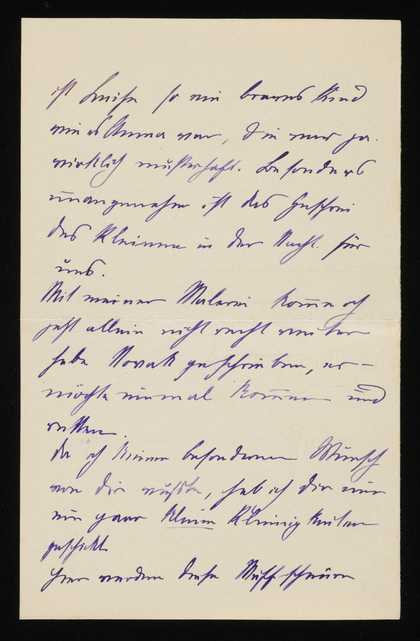 ist Luise so ein braves Kind
wie es Anna war, die war ja
wirklich musterhaft. Besonders
unangenehm ist das Geschrei
des Kleinen in der Nacht für
uns.
Mit meiner Malerei komme ich
jetzt allein nicht recht weiter
habe Novak geschrieben, er
möchte einmal kommen und
retten.
Da ich keinen besonderen Wunsch
von dir wußte, hab ich dir nur
ein paar kleine Kleinigkeiten
geschickt.
Hier werden diese